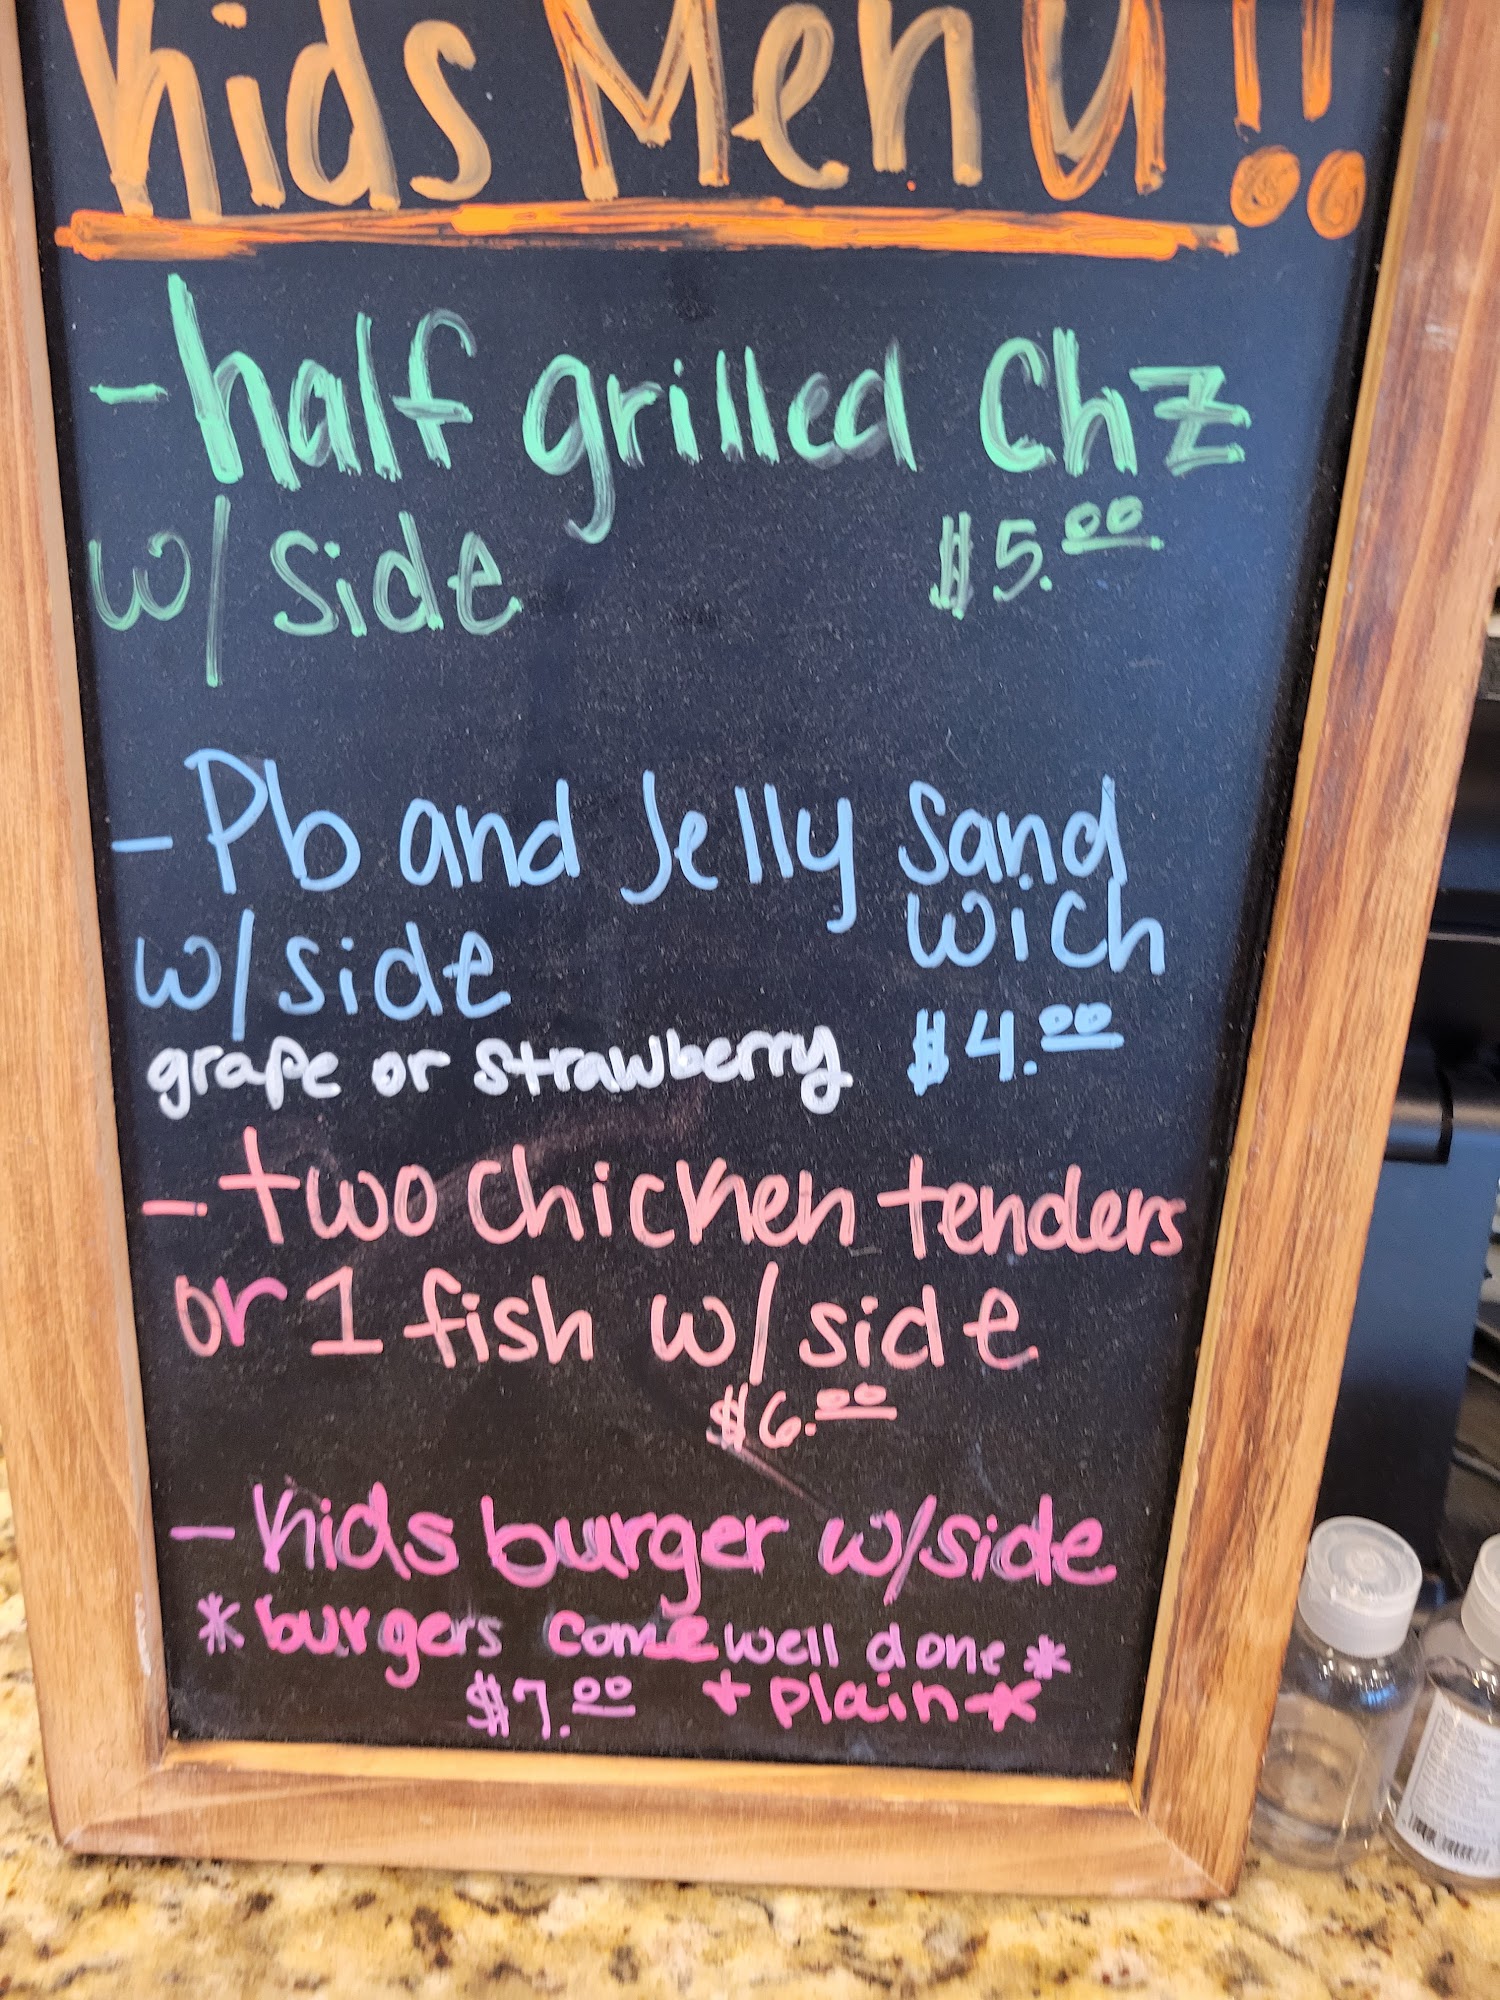 Kids Menu!!
- half grilled Chz
w/ side $5.00
- Pb and Jelly Sand
wich
w/ side
grape or strawberry $4.00
- two chicken tenders
or 1 fish w/ side
$6.00
- Kids burger w/side
* burgers come well done *
$7.00 + plain *